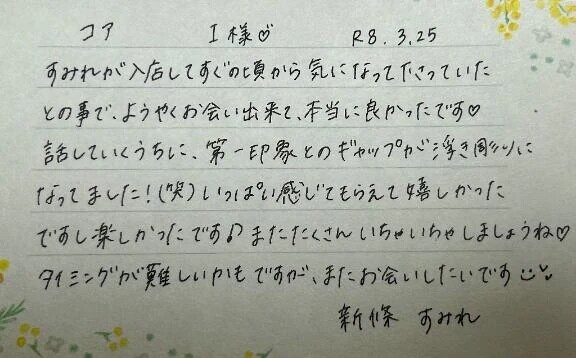 コア I様♡ R8.3.25
すみれが入店してすぐの頃から気になって下さっていた
との事で、ようやくお会い出来て、本当に良かったです♡
話していくうちに、第一印象とのギャップが浮き彫りに
なってました!(笑)いっぱい感じてもらえて嬉しかった
ですし楽しかったです♪またたくさんいちゃいちゃしましょうね♡
タイミングが難しいかもですが、またお会いしたいです
新條 すみれ